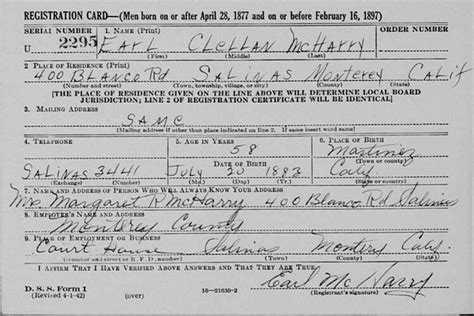 REGISTRATION CARD—(Men born on or after April 28, 1877 and on or before February 16, 1897)
SERIAL NUMBER 1. NAME (Print) ORDER NUMBER
U 2295 Earl Clellan McHarry
(First) (Middle) (Last)
2. PLACE OF RESIDENCE (Print)
400 Blanco Rd Salinas Monterey Calif
(Number and street) (Town, township, village, or city) (County) (State)
[THE PLACE OF RESIDENCE GIVEN ON THE LINE ABOVE WILL DETERMINE LOCAL BOARD
JURISDICTION; LINE 2 OF REGISTRATION CERTIFICATE WILL BE IDENTICAL]
3. MAILING ADDRESS
SAME
[Mailing address if other than place indicated on line 2. If same insert word same]
4. TELEPHONE 5. AGE IN YEARS 6. PLACE OF BIRTH
58 Martinez
DATE OF BIRTH (Town or county)
Salinas 3441 July 20 1883 Calif
(Exchange) (Number) (Mo.) (Day) (Yr.) (State or country)
7. NAME AND ADDRESS OF PERSON WHO WILL ALWAYS KNOW YOUR ADDRESS
Mrs. Margaret R McHarry 400 Blanco Rd Salinas
8. EMPLOYER'S NAME AND ADDRESS
Monterey County
9. PLACE OF EMPLOYMENT OR BUSINESS
Court House Salinas Monterey Calif.
(Number and street or R. F. D. number) (Town) (County) (State)
I AFFIRM THAT I HAVE VERIFIED ABOVE ANSWERS AND THAT THEY ARE TRUE.
D. S. S. Form 1 Earl McHarry
(Revised 4-1-42) 16—21630-2 (Registrant's signature)